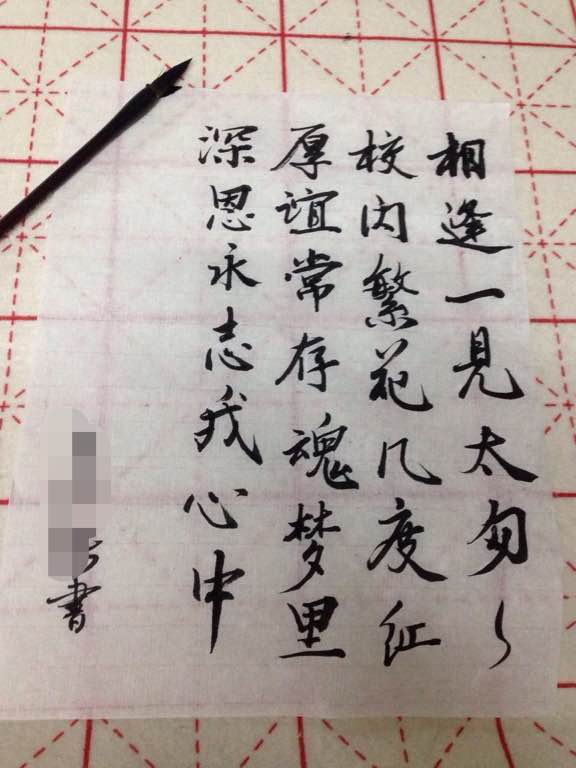 相逢一見太匆々
校内繁花几度红
厚谊常存魂梦里
深恩永志我心中
書